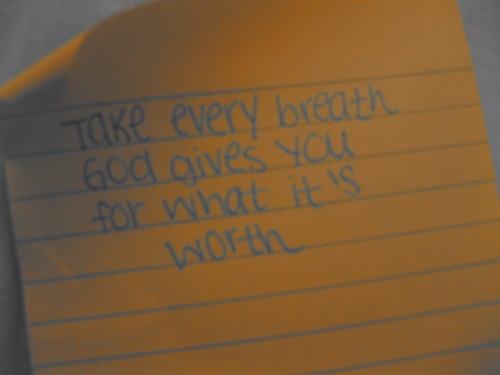 Take every breath
God gives you
for what it's
worth